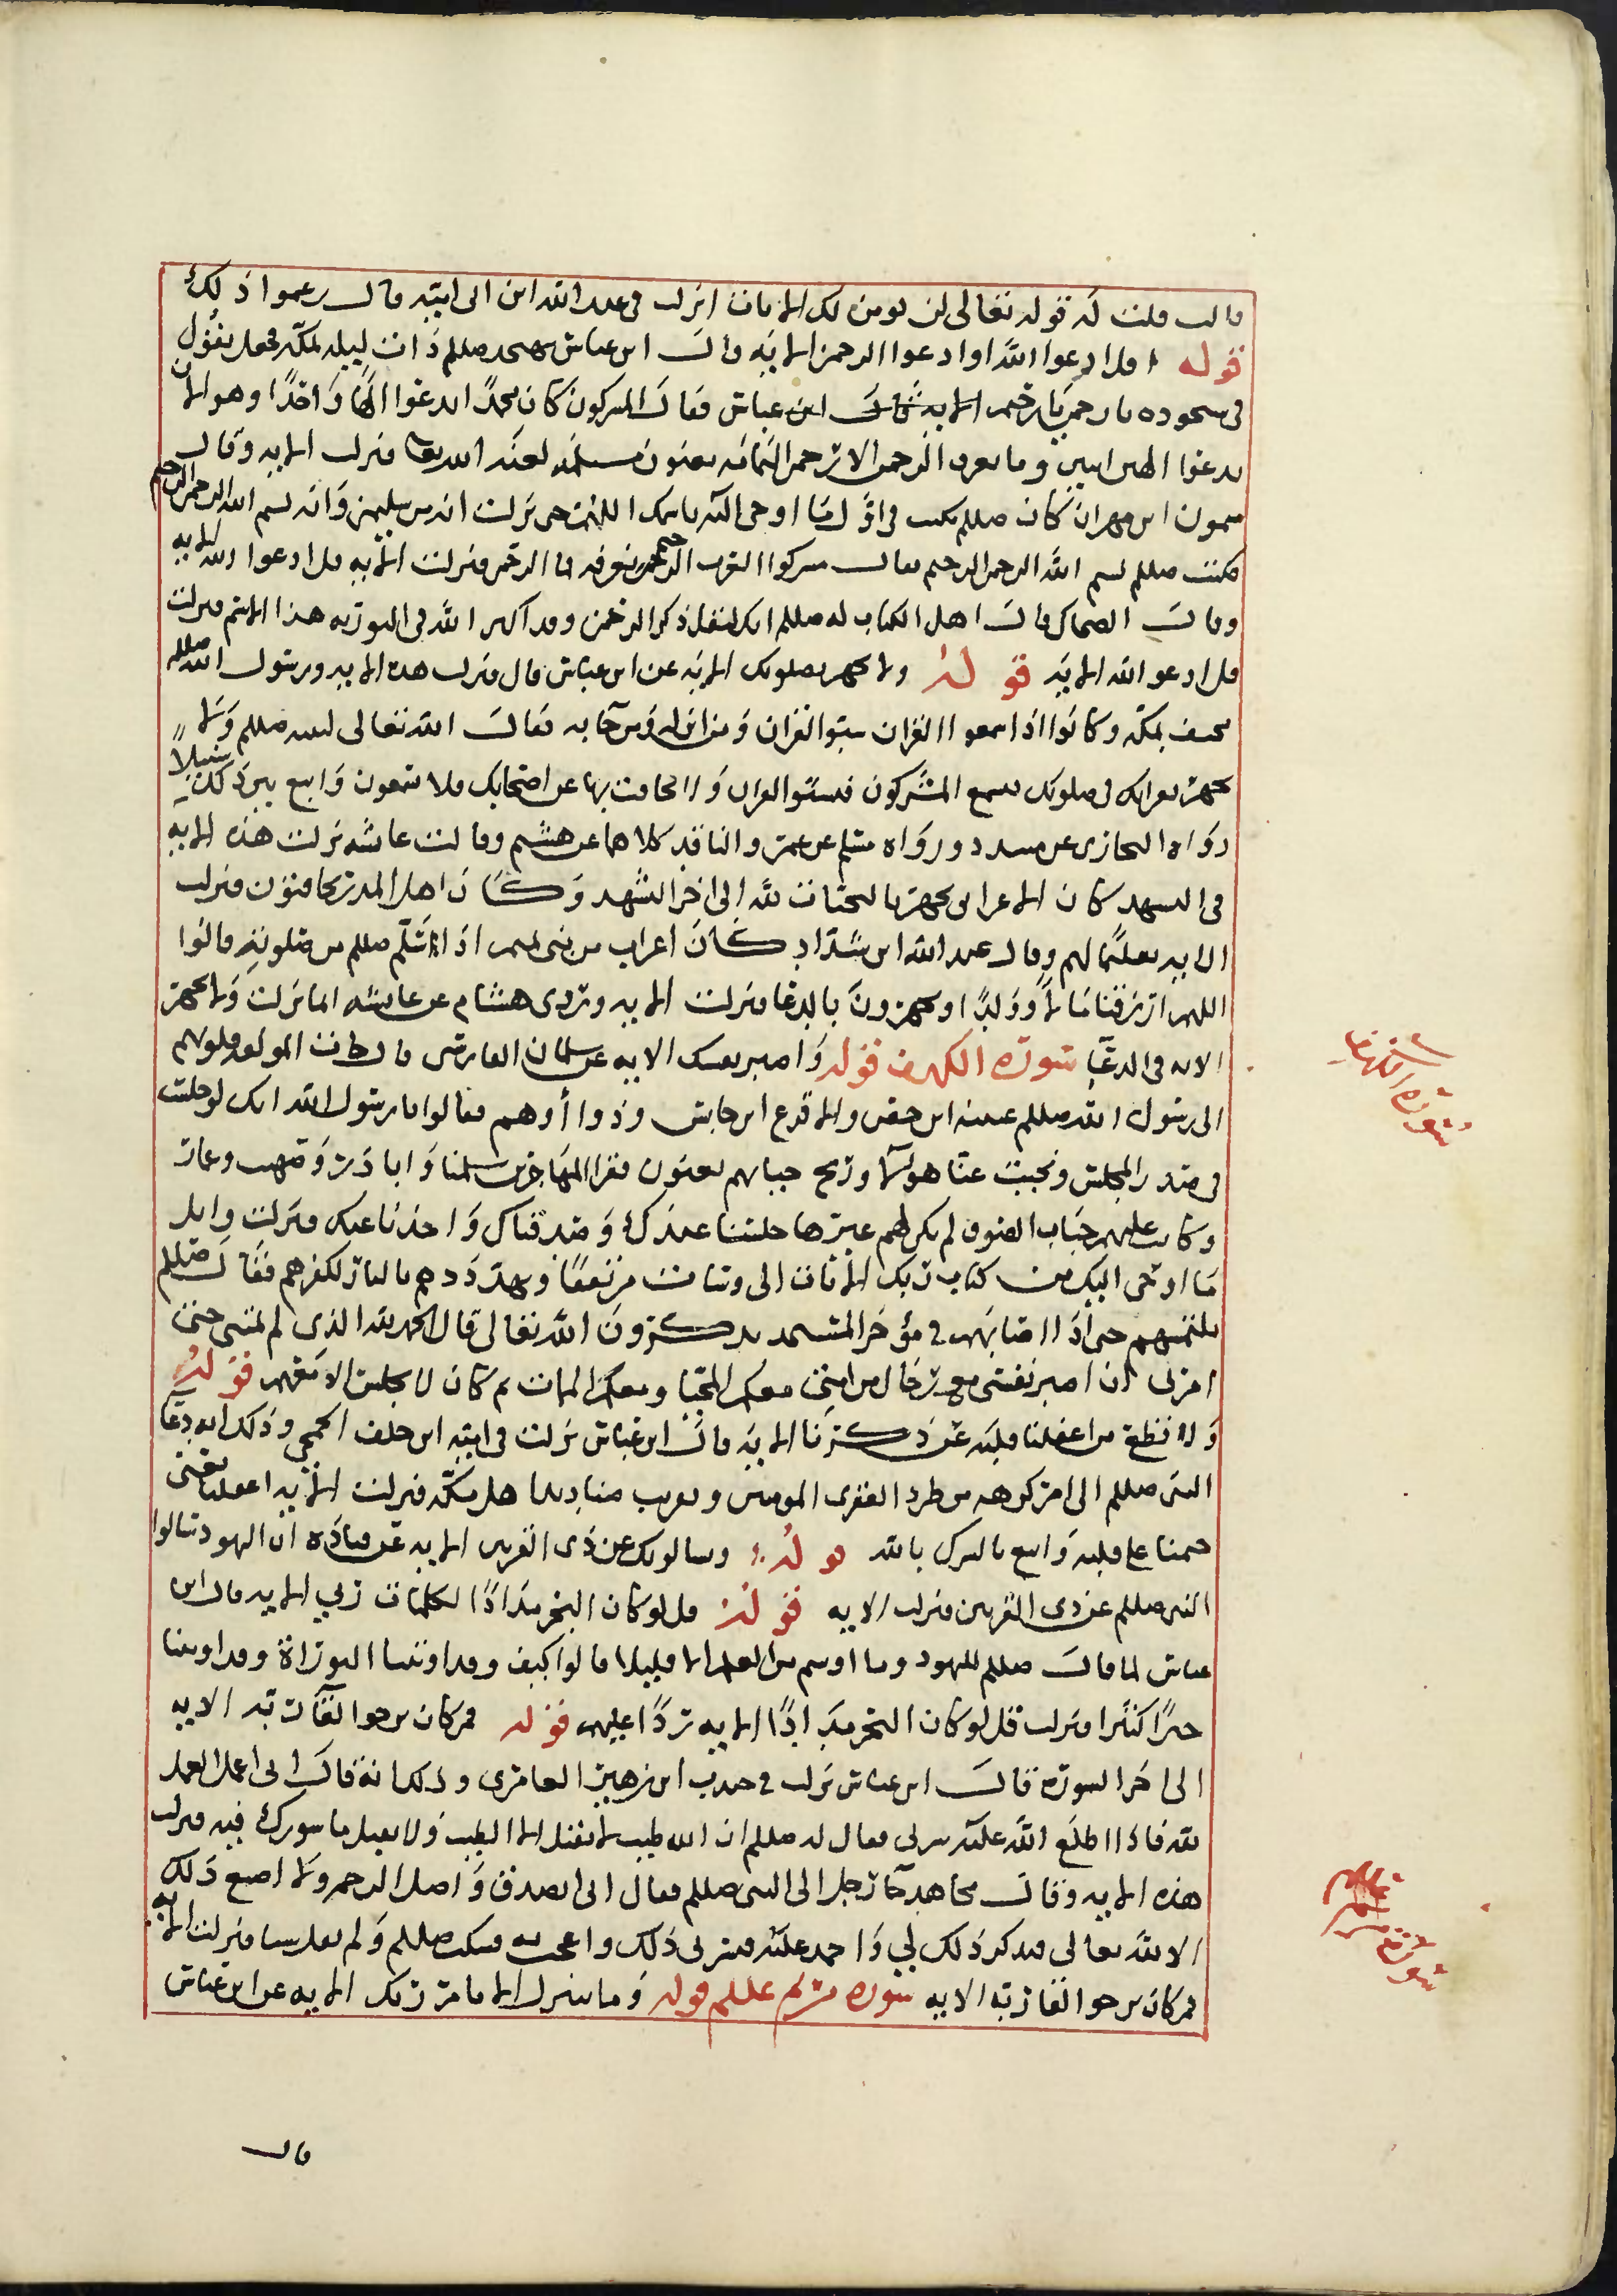 قالت قلت له قوله تعالى لن نومن لك الايات انزلت في عبد الله ابن ابي اميه قال زعموا ذلك
قوله قل ادعوا الله او ادعوا الرحمن الايه قال ابن عباس تهجد صللم ذات ليله بمكه فجعل يقول
في سجوده يا رحمن يا رحيم الايه قال ابن عباس فقال المشركون كان محمدا يدعوا الها واحدا وهو الان
يدعوا الهين اثنين وما نعرف الرحمن الا رحمن اليمامه يعنون مسيلمه لعنه الله تعالى فنزلت الايه وقال
ميمون ابن مهران كان صللم يكتب في اول ما اوحي اليه باسمك اللهم حتى نزلت انه من سليمن وانه بسم الله الرحمن الرحيم
فكتب صللم بسم الله الرحمن الرحيم فقال مشركوا العرب الرحيم نعرفه فما الرحمن فنزلت الايه قل ادعوا الله الايه
وقال الضحاك قال اهل الكتاب له صللم انك لتقل ذكر الرحمن وقد اكثر الله في التوريه هذا الاسم فنزلت
قل ادعو الله الايه قوله ولا تجهر بصلوتك الايه عن ابن عباس قال نزلت هذه الايه ورسول الله صللم
مختف بمكه وكانوا اذا سمعوا القران سبوا القران ومن انزله ومن جا به فقال الله تعالى لنبيه صللم ولا
تجهر بقراتك في صلوتك فيسمع المشركون فيسبوا القران ولا تخافت بها عن اصحابك فلا يسمعون وابتغ بين ذلك سبيلا
رواه البخاري عن مسدد ورواه مسلم عن عمرو الناقد كلاهما عن هشيم وقالت عائشه نزلت هذه الايه
في التشهد كان الاعرابي يجهر بالتحيات لله الى اخر التشهد وكان اهل المدر يخافتون فنزلت
الايه تعليما لهم وقال عبد الله ابن شداد كان اعراب من بني تميم اذا سلم صللم من صلوته قالوا
اللهم ارزقنا مالا وولدا ويجهرون بالدعا فنزلت الايه وروى هشام عن عايشه انما نزلت ولا تجهر
الايه في الدعا سورة الكهف قوله واصبر نفسك الايه عن سلمان الفارسي قال جات المولفه قلوبهم
الى رسول الله صللم عيينه ابن حصن والاقرع ابن حابس وذوا أوهم فقالوا يا رسول الله انك لو جلست
في صدر المجلس ونحيت عنا هولا وريح جبابهم يعنون فقرا المهاجرين سلمنا وابا ذر وصهيب وعمار
وكانت عليهم جباب الصوف لم يكن لهم غيرها جلسنا عندك وصدقناك واخذنا عنك فنزلت واتل
ما اوحي اليك من كتاب ربك الايات الى وسات مرتفقا وتهددهم بالنار لكفرهم فقام صللم
يلتمسهم حتى اذا اصابهم في مؤخر المسجد يذكرون الله تعالى قال الحمد لله الذي لم يمتني حتى
امرني ان اصبر نفسي مع رجال من امتي معكم المحيا ومعكم الممات ثم كان لا يجلس الا معهم قوله
ولا تطع من اغفلنا قلبه عن ذكرنا الايه قال ابن عباس نزلت في اميه ابن خلف الجمحي وذلك انه دعا
النبي صللم الى امر كرهه من طرد الفقرى المومنين وتقريب صناديد اهل مكه فنزلت الايه اغفلنا يعني
ختمنا على قلبه واتبع بالشرك بالله قوله ويسالونك عن ذي القرنين الايه عن قتاده ان اليهود سالوا
النبي صللم عن ذي القرنين فنزلت الايه قوله قل لو كان البحر مدادا لكلمات ربي الايه قال ابن
عباس لما قال صللم لليهود وما اوتيتم من العلم الا قليلا قالوا كيف وقد اوتينا التوراة وقد اوتينا
خيرا كثيرا فنزلت قل لو كان البحر مدادا الايه ردا عليهم قوله فمن كان يرجوا لقآ ربه الايه
الى اخر السوره قال ابن عباس نزلت في جندب ابن زهير العامري وذلك انه قال اني اعمل العمل
لله فاذا اطلع الله عليه سرني فقال له صللم ان الله طيب لا يقبل الا الطيب ولا يقبل ما شورك فيه فنزلت
هذه الايه وقال مجاهد جا رجل الى النبي صللم فقال اني اتصدق واصل الرحم ولا اصنع ذلك
الا لله تعالى فيذكر ذلك لي واحمد عليه فيسرني ذلك واعجب به فسكت صللم ولم يقل شيا فنزلت الايه
فمن كان يرجوا لقا ربه الايه سورة مريم عللم قوله وما نتنزل الا بامر ربك الايه عن ابن عباس
قال
سورة الكهف
سورة مريم